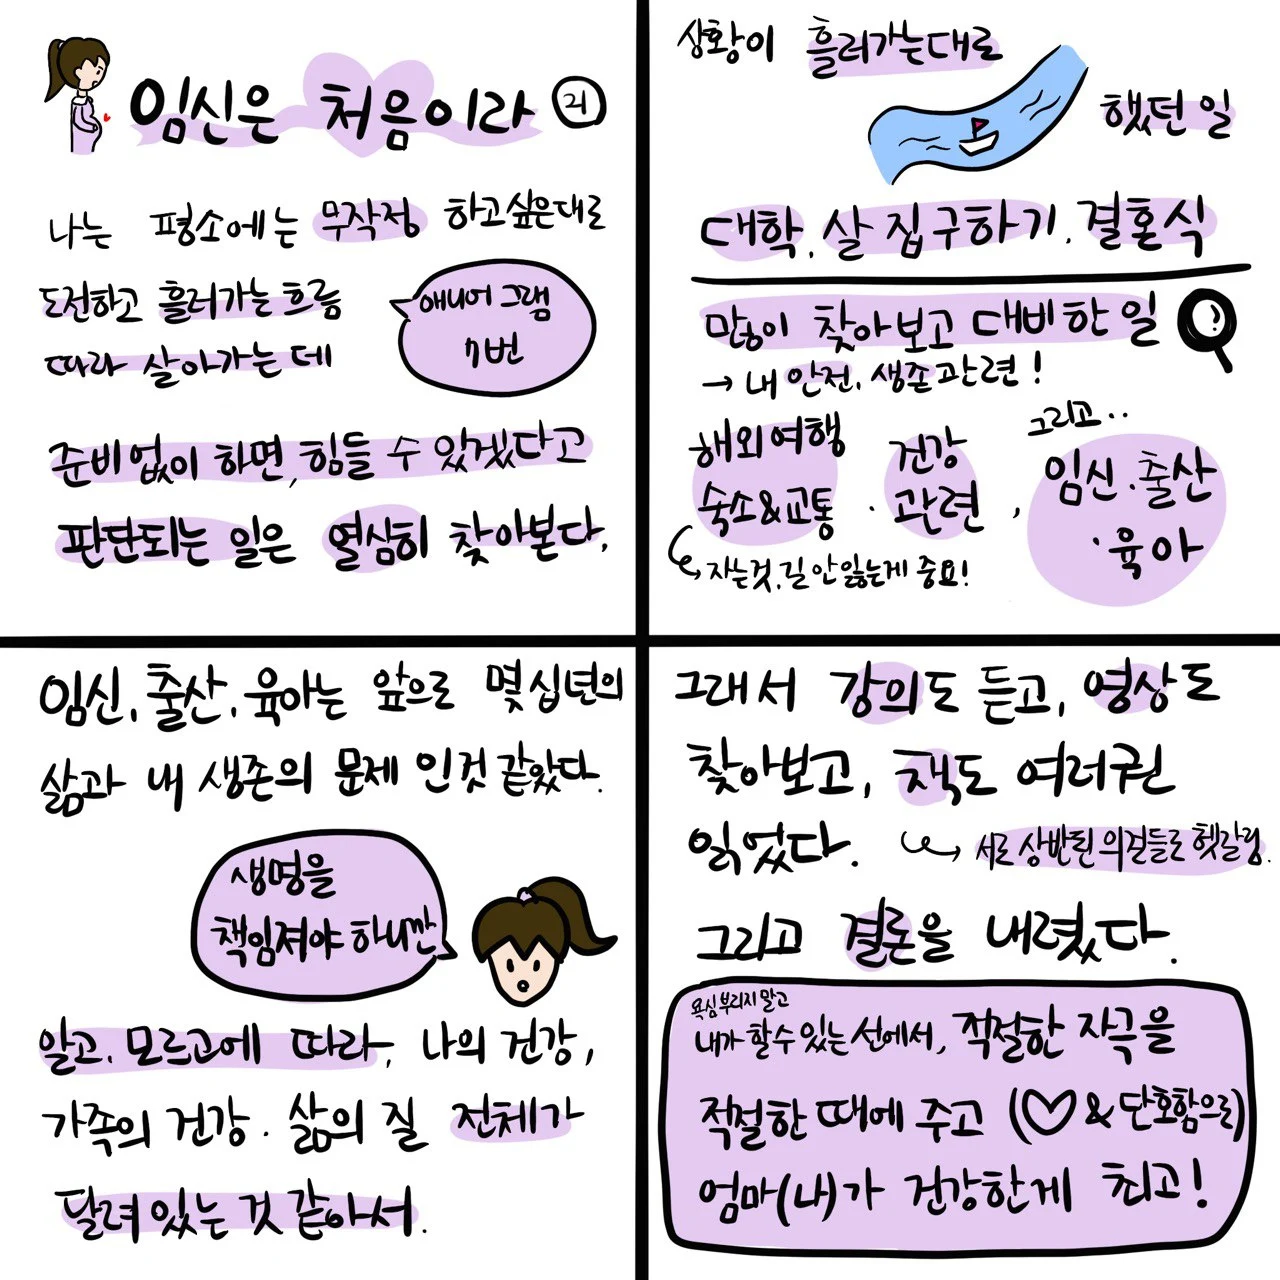 임신은 처음이라 21
나는 평소에는 무작정 하고싶은대로
도전하고 흘러가는 흐름
따라 살아가는 데
애니어그램
7번
준비없이 하면, 힘들 수 있겠다고
판단되는 일은 열심히 찾아본다.
상황이 흘러가는대로
했던 일
대학, 살 집 구하기, 결혼식
많이 찾아보고 대비한 일
→ 내 안전, 생존관련!
해외여행
숙소&교통
, 건강
관련
, 그리고..
임신.출산
.육아
자는것, 길 안잃는게 중요!
임신, 출산, 육아는 앞으로 몇십년의
삶과 내 생존의 문제인것 같았다.
생명을
책임져야 하니깐
알고, 모르고에 따라, 나의 건강,
가족의 건강. 삶의 질 전체가
달려있는 것 같아서.
그래서 강의도 듣고, 영상도
찾아보고, 책도 여러권
읽었다.
서로 상반된 의견들로 헷갈림.
그리고 결론을 내렸다.
욕심부리지 말고
내가 할수있는 선에서, 적절한 자극을
적절한 때에 주고 (♡&단호함으로)
엄마(나)가 건강한게 최고!